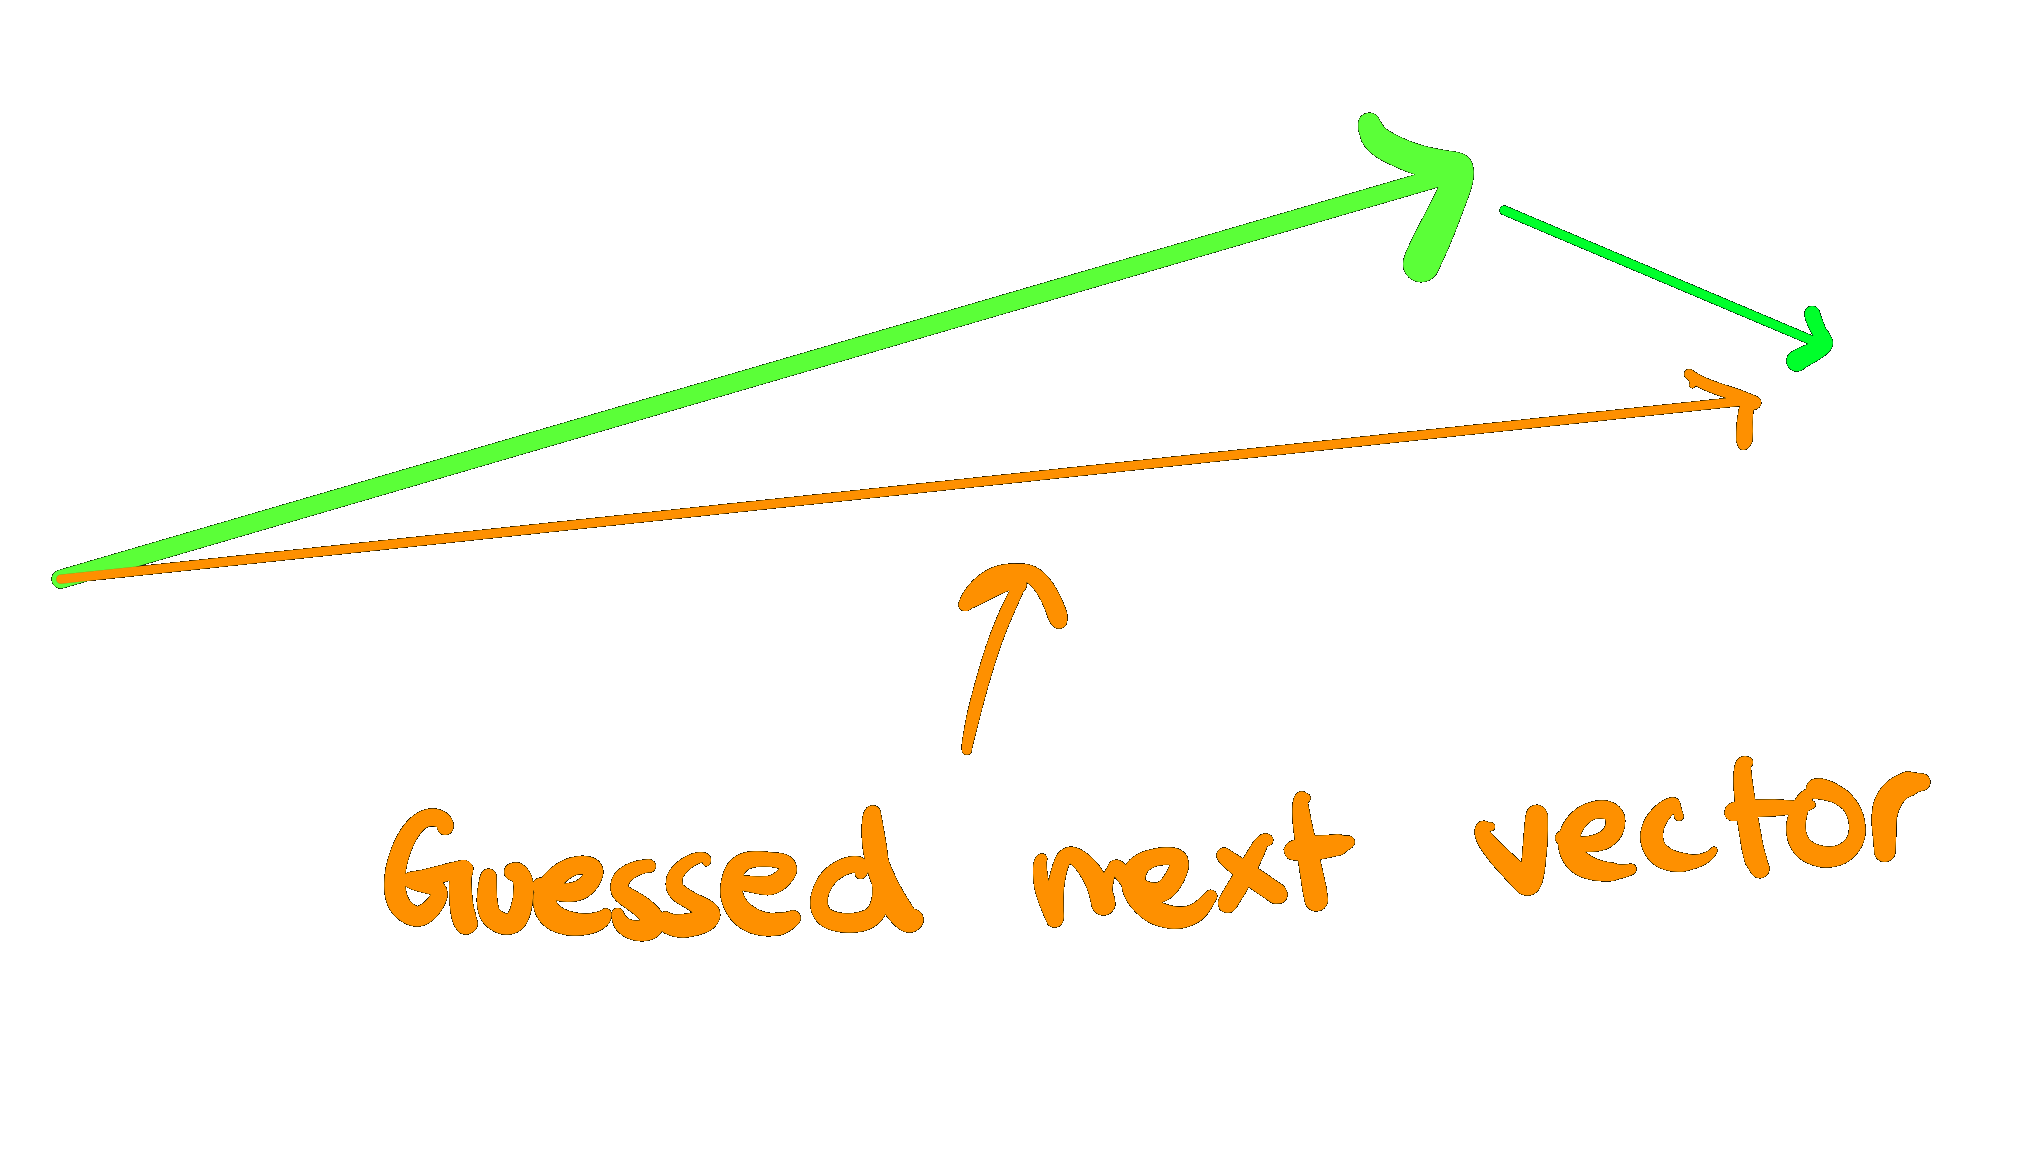 Guessed next vector